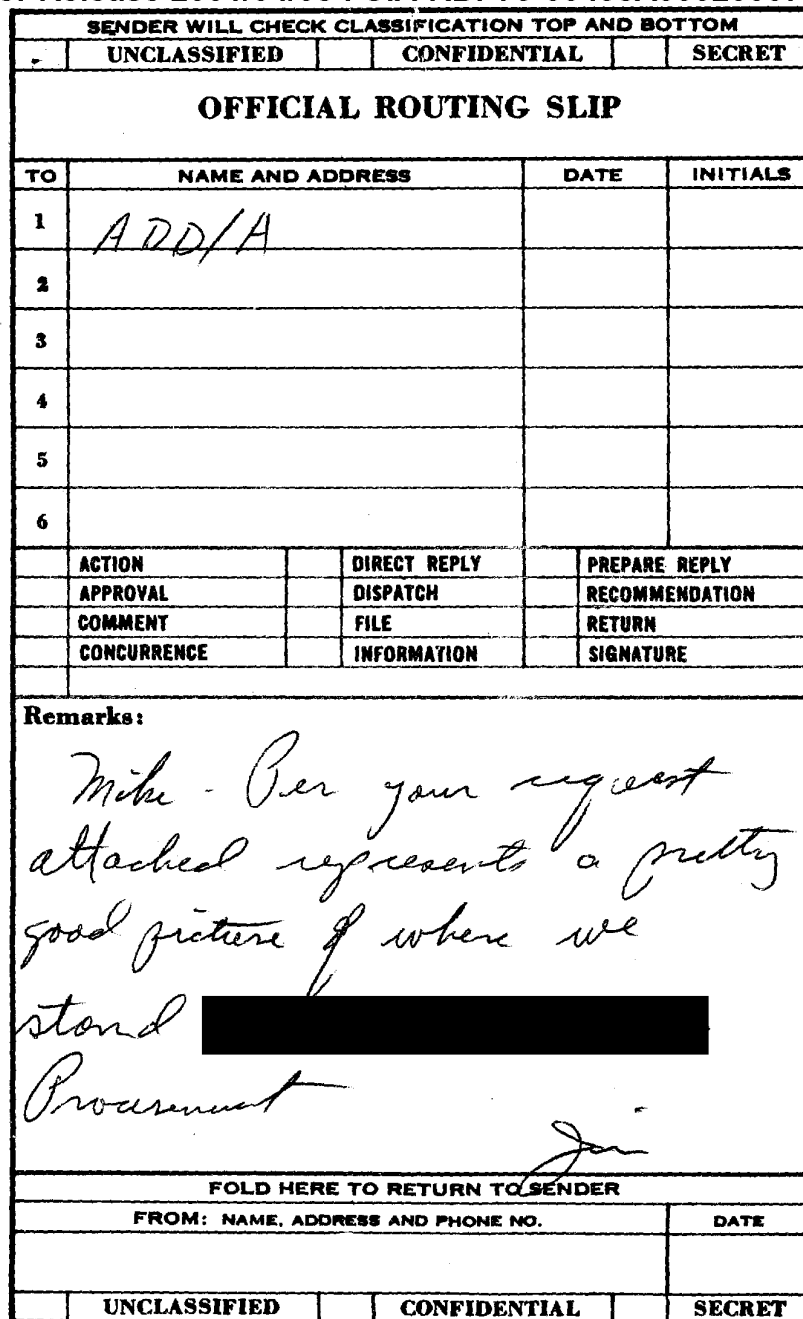 SENDER WILL CHECK CLASSIFICATION TOP AND BOTTOM
UNCLASSIFIED CONFIDENTIAL SECRET
OFFICIAL ROUTING SLIP
TO NAME AND ADDRESS DATE INITIALS
1 ADD/A
2
3
4
5
6
ACTION DIRECT REPLY PREPARE REPLY
APPROVAL DISPATCH RECOMMENDATION
COMMENT FILE RETURN
CONCURRENCE INFORMATION SIGNATURE
Remarks:
Mike - Per your request
attached represents a pretty
good picture of where we
stand
Procurement
Jim
FOLD HERE TO RETURN TO SENDER
FROM: NAME, ADDRESS AND PHONE NO. DATE
UNCLASSIFIED CONFIDENTIAL SECRET